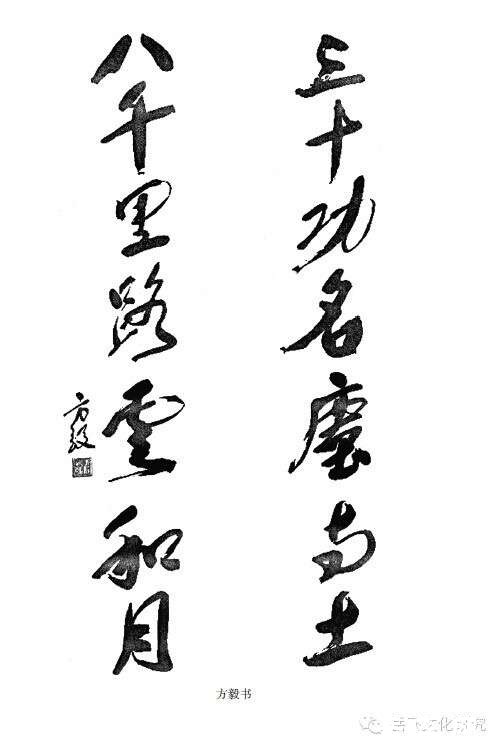 三十功名塵与土
八千里路雲和月
方毅
方毅书
岳飞文化研究